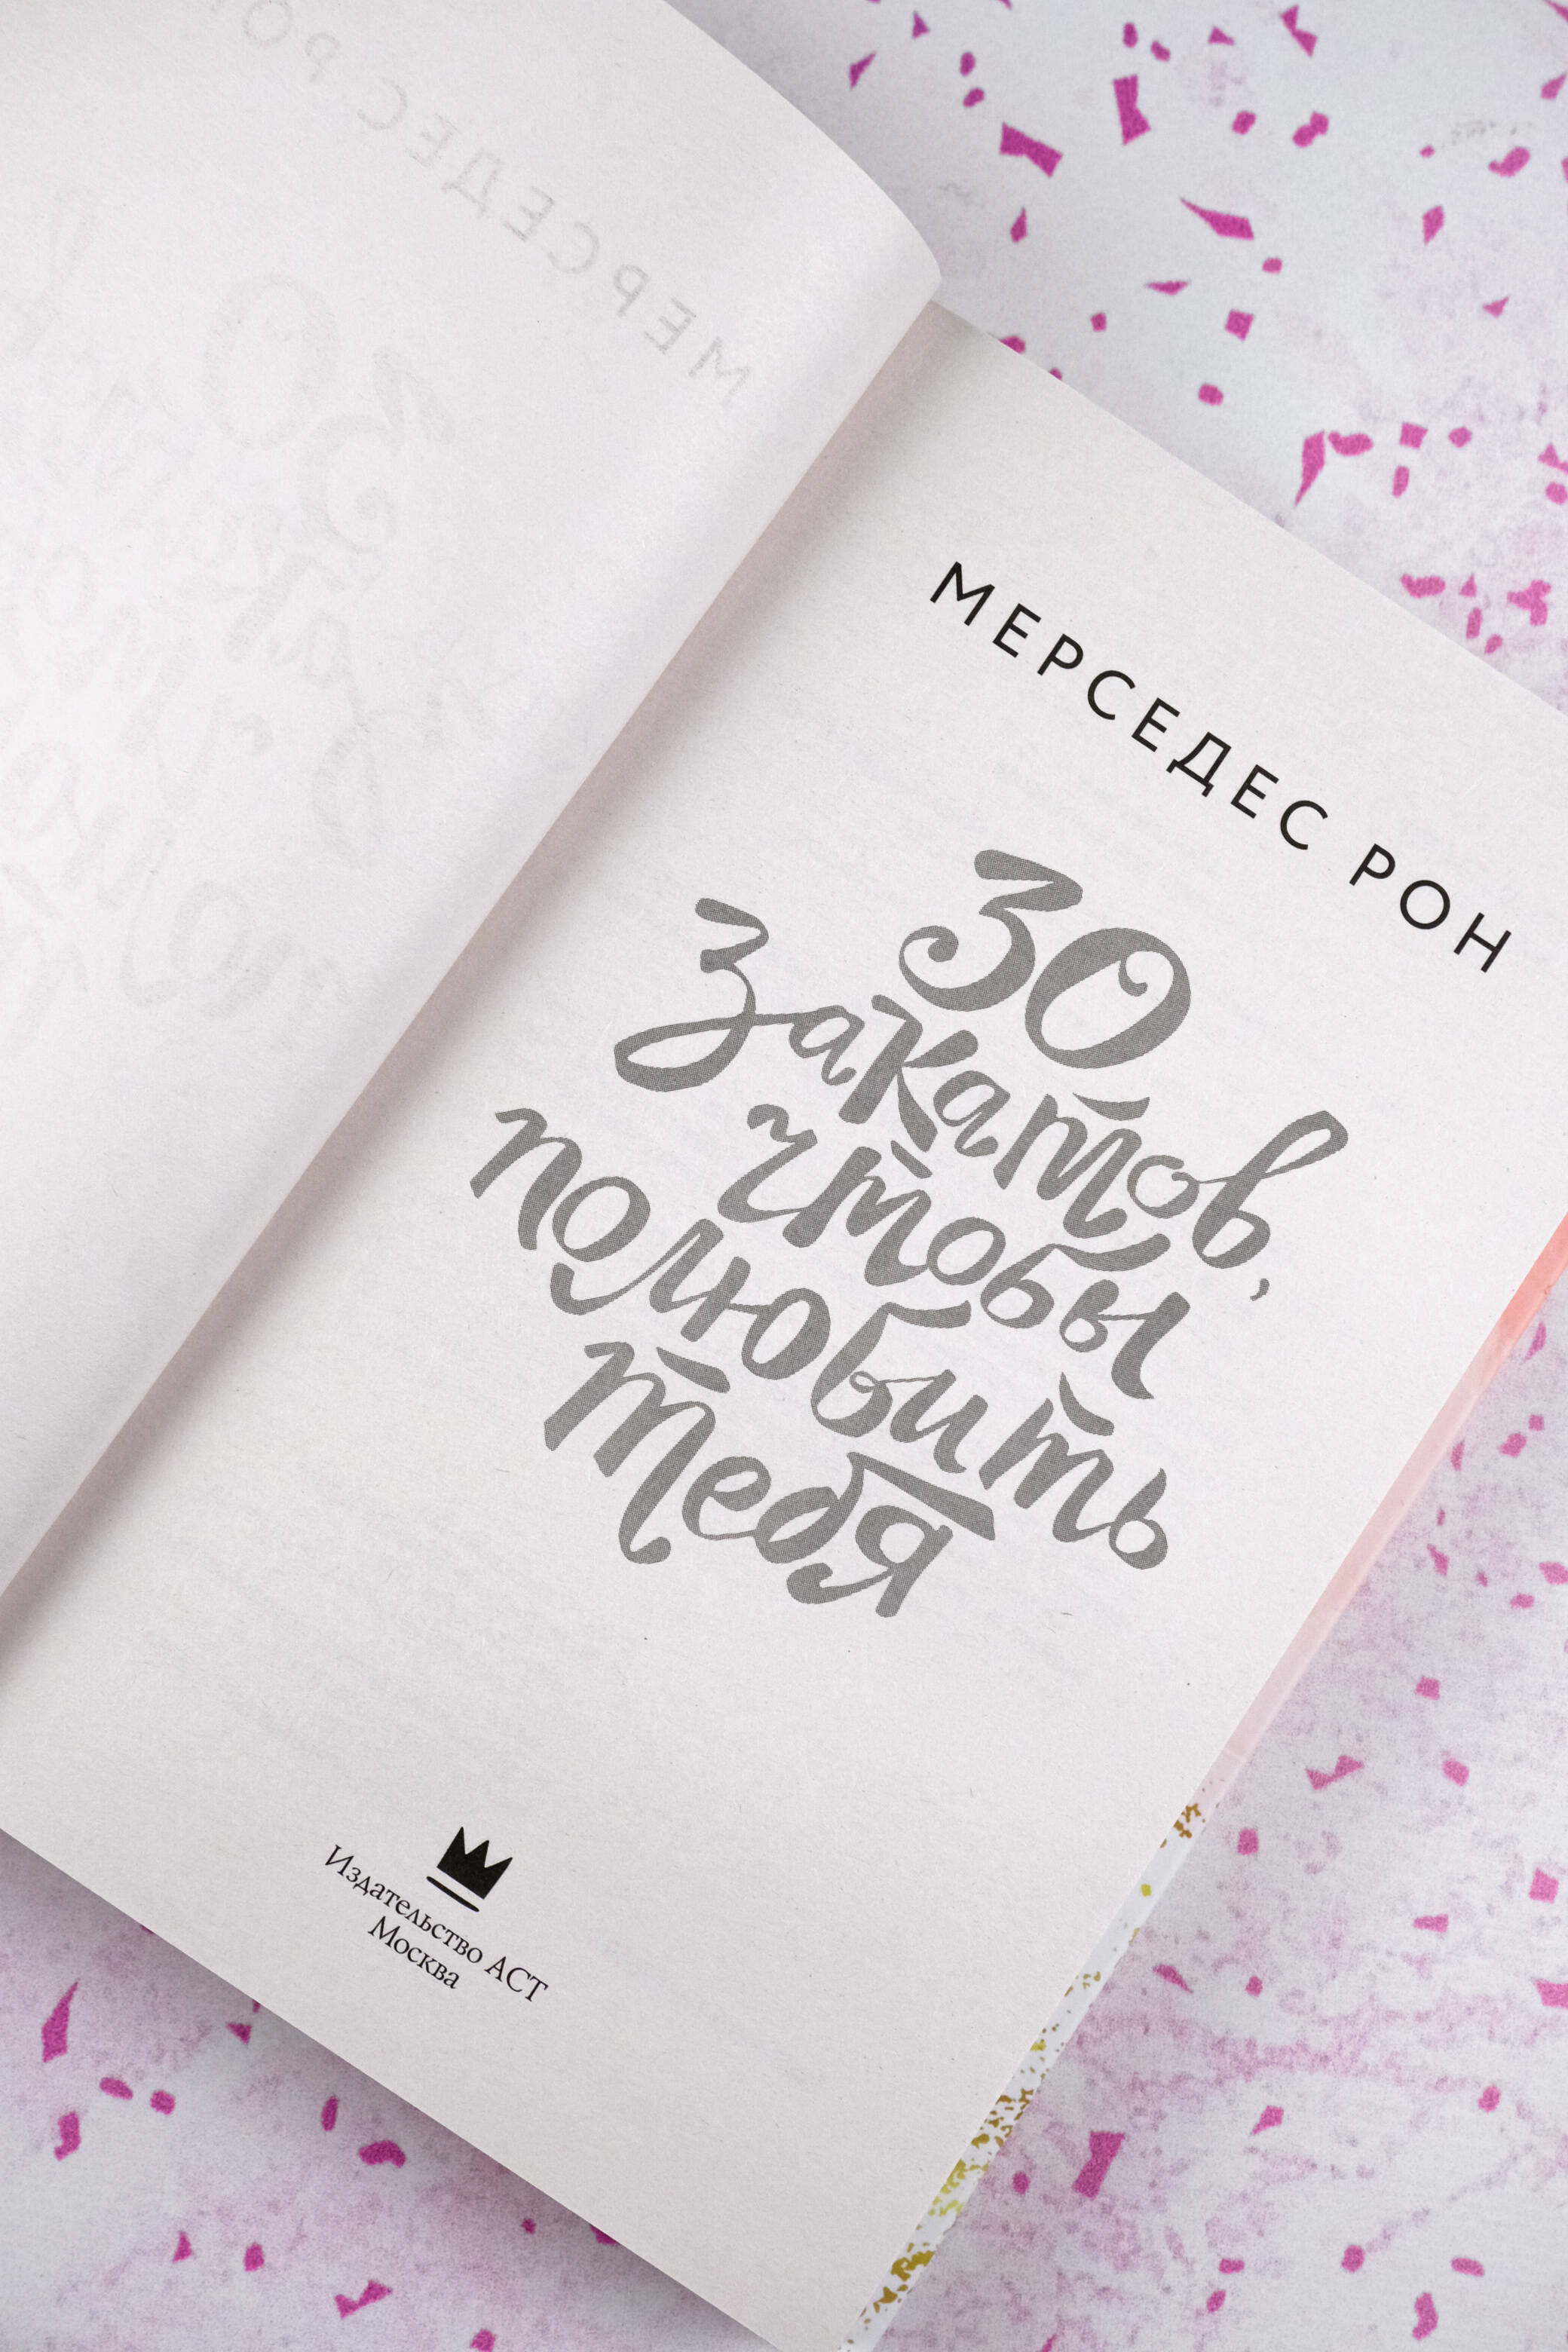 МЕРСЕДЕС РОН
30
закатов,
чтобы
полюбить
тебя
Издательство АСТ
Москва